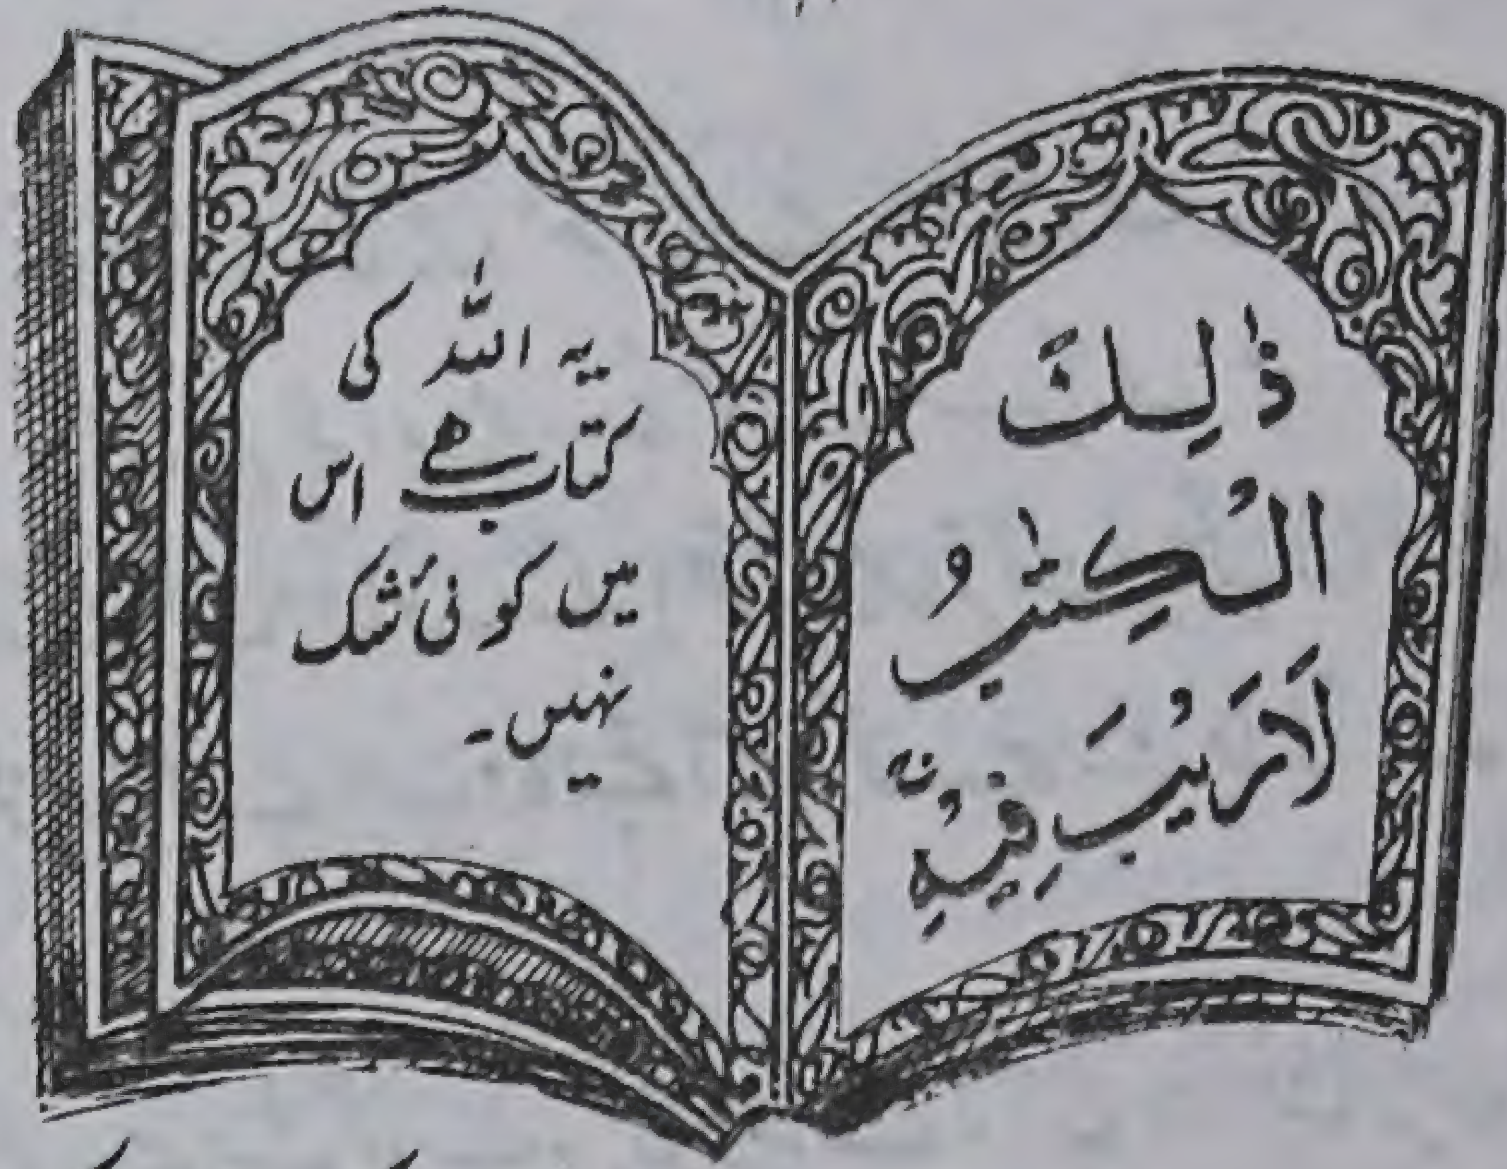 ذٰلِكَ
الْكِتٰبُ
لَا رَيْبَ فِيْهِ
یہ اللہ کی
کتاب ہے اس
میں کوئی شک
نہیں۔